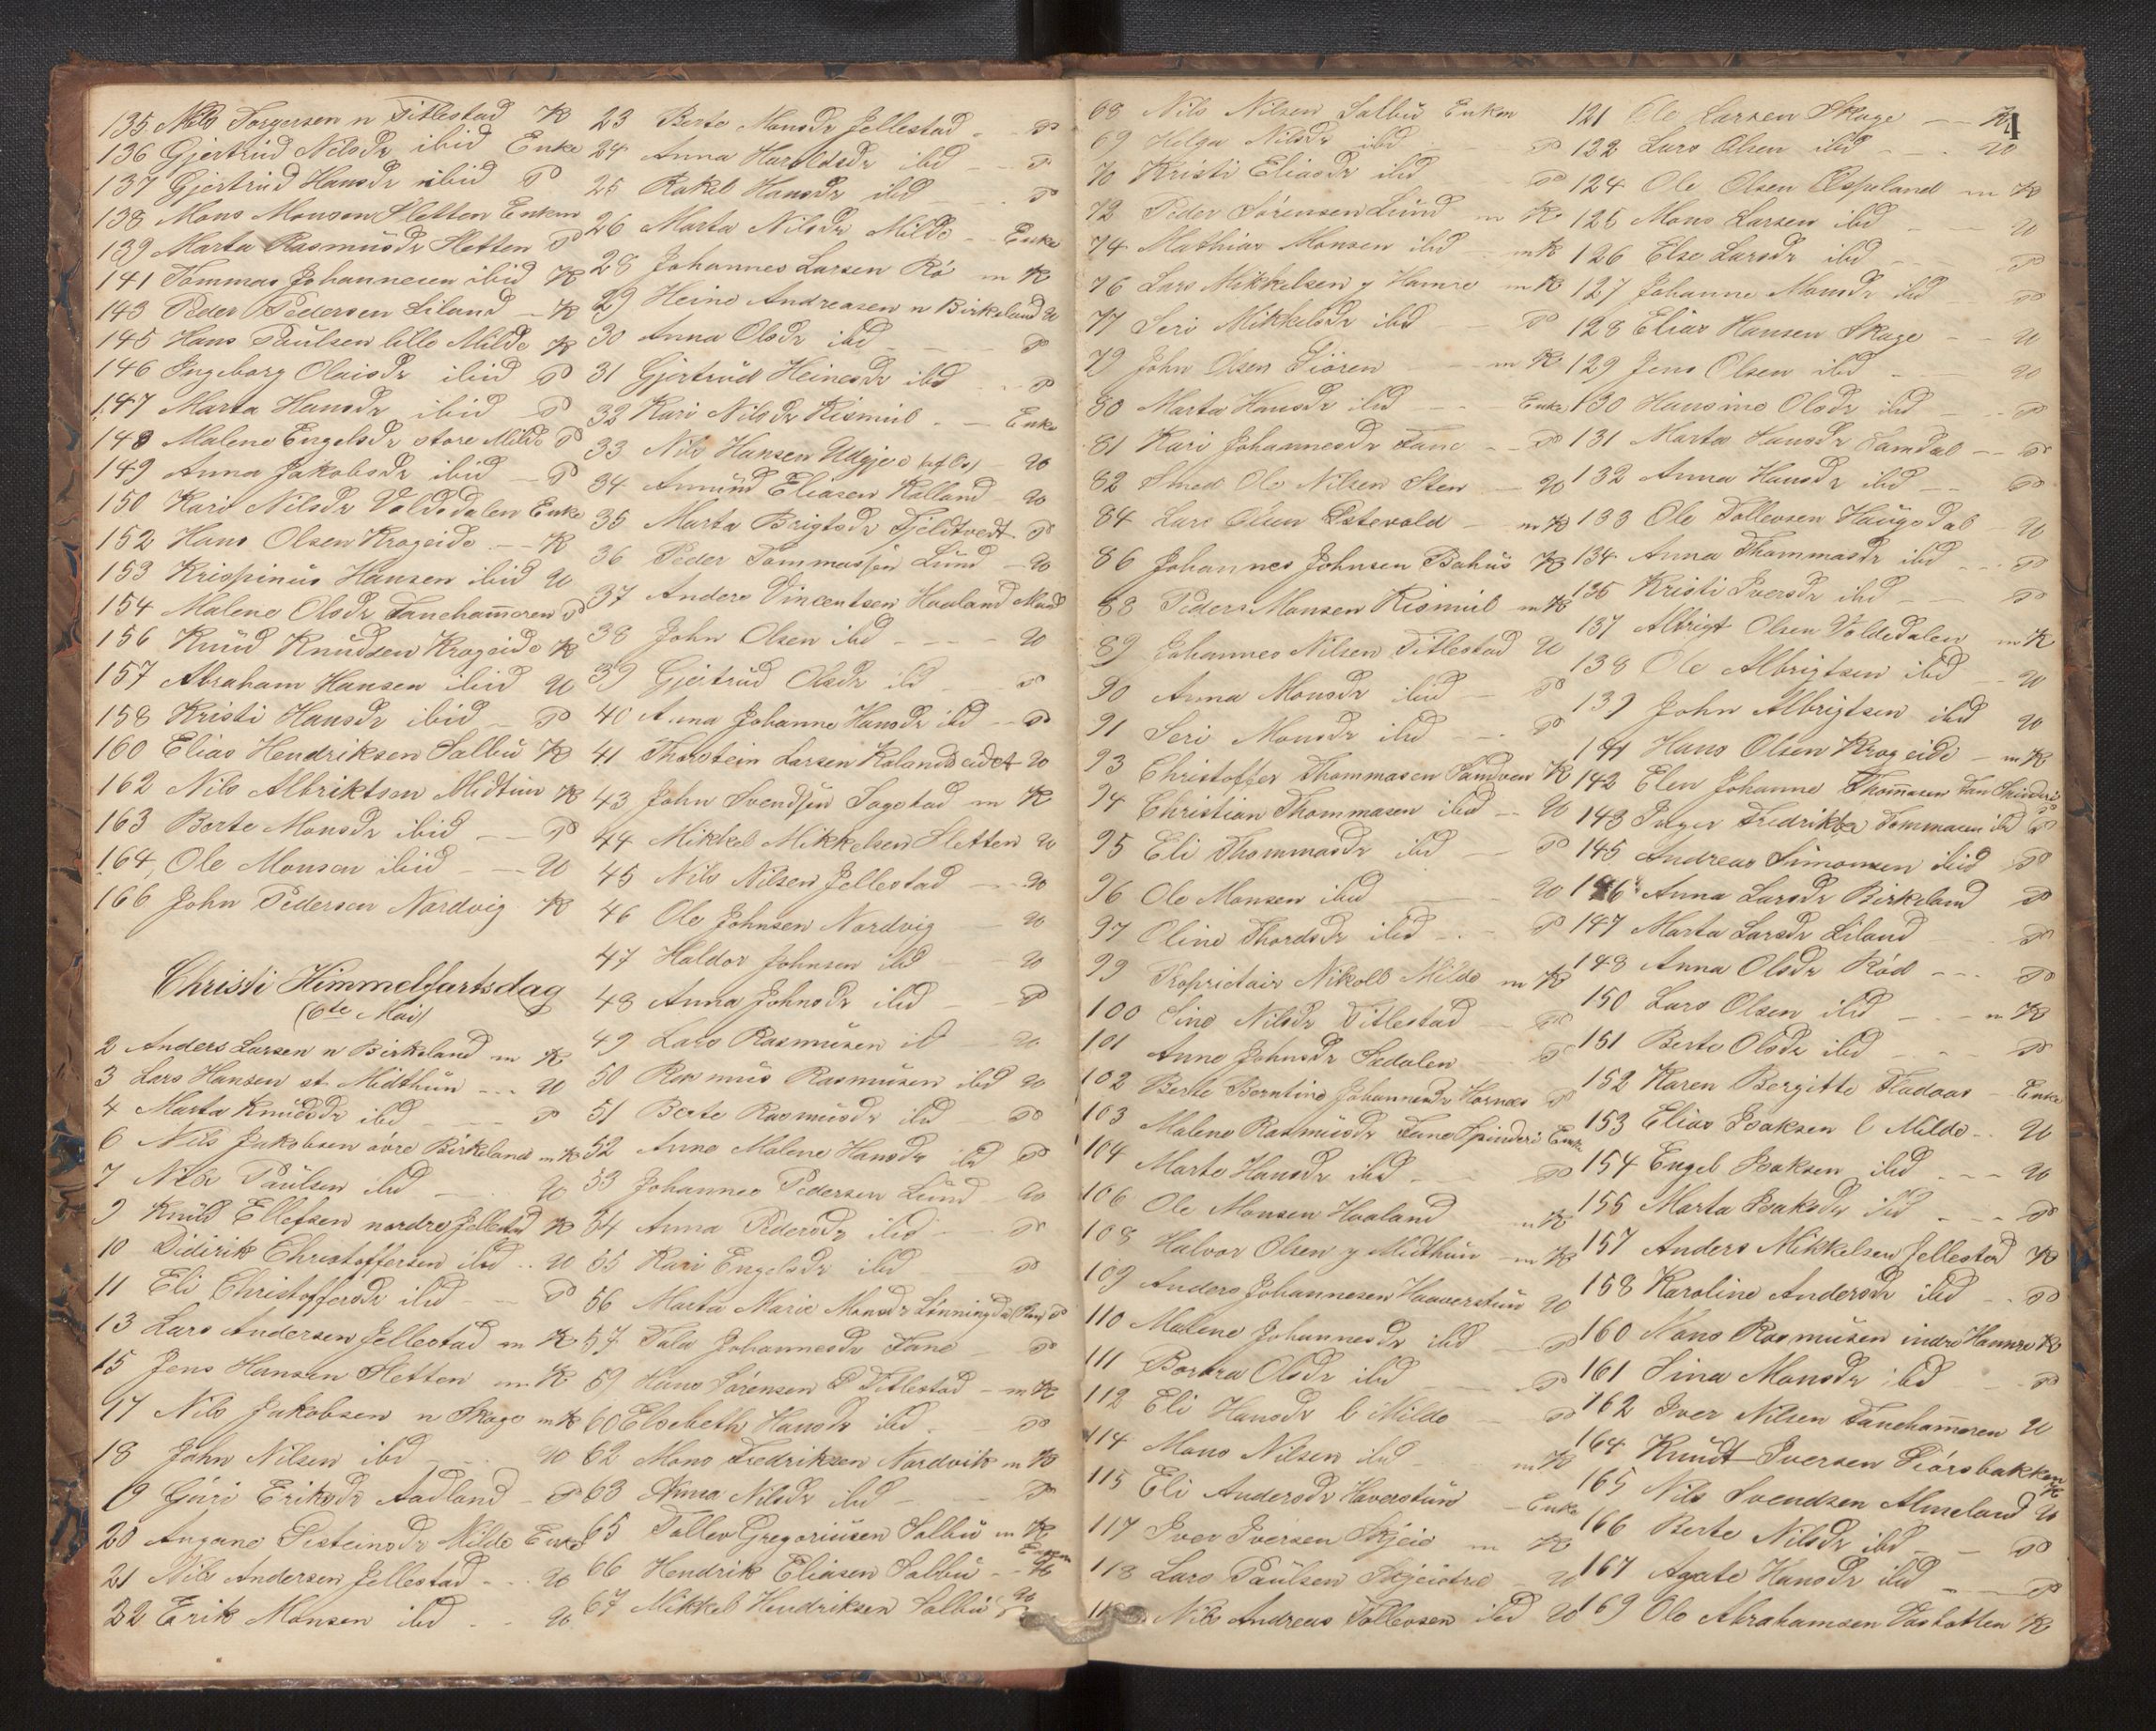 135 Nils Torgersen n Titlestad K
136 Gjertrud Nilsdr ibid Enke
137 Gjertrud Hansdr ibid P
138 Mons Monsen Sletten Enkem
139 Marta Rasmusdr Sletten P
141 Tommas Johannesen ibid K
143 Peder Pedersen Liland - K
145 Hans Paulsen lille Milde K
146 Ingeborg Olaisdr ibid P
147 Marta Hansdr ibid P
148 Malene Engelsdr store Milde P
149 Anna Jakobsdr ibid - P
150 Kari Nilsdr Voldsdalen Enke
152 Hans Olsen Krogeide - K
153 Krispinus Hansen ibid U
154 Malene Olsdr Fanehammeren P
156 Knud Knudsen Krogeide K
157 Abraham Hansen ibid U
158 Kristi Hansdr ibid - P
160 Elias Hendriksen Salbu K
162 Nils Albriktsen Midtun K
163 Berte Monsdr ibid - - P
164 Ole Monsen ibid - - U
166 John Pedersen Nordvig K
Christi Himmelfartsdag
(6te Mai)
2 Anders Larsen n Birkeland m K
3 Lars Hansen st. Midthun - - U
4 Marta Knudsdr ibd - - P
6 Nils Jakobsen øvre Birkeland m K
7 Nils Paulsen ibd - U
9 Knud Ellefsen nordre Jellestad K
10 Didirik Christoffersen ibd - - U
11 Eli Christoffersdr ibd - - P
13 Lars Andersen Jellestad m K
15 Jens Hansen Sletten m K
17 Nils Jakobsen n Skage m K
18 John Nilsen ibd - - U
19 Guri Eriksdr Aadland - P
20 Angane Pisteinsdr Milde Enke
21 Nils Andersen Jellestad - - U
22 Erik Monsen ibd - - U
23 Berte Monsdr Jellestad - - P
24 Anna Haroldsdr ibd - - P
25 Rakel Hansdr ibd - - P
26 Marta Nilsdr Milde - - Enke
28 Johannes Larsen Rø m K
29 Heine Andreasen n Birkeland U
30 Anna Olsdr ibd - - P
31 Gjertrud Heinesdr ibd - - P
32 Kari Nilsdr Rismul - - Enke
33 Nils Hansen (af Os) - U
34 Amund Eliasen Kalland - U
35 Marta Brigtsdr Fjeldtvedt P
36 Peder Tommassen Lund - U
37 Anders Vincentsen Haaland
38 John Olsen ibd - - - U
39 Gjertrud Olsdr ibd - - P
40 Anna Johanne Hansdr ibd - P
41 Thorstein Larsen Kalandseidet U
43 John Svendsen Sagstad m K
44 Mikkel Mikkelsen Sletten U
45 Nils Nilsen Jellestad - - U
46 Ole Johnsen Nordvig - U
47 Haldor Johnsen ibd - U
48 Anna Johnsdr ibd - - P
49 Lars Rasmusen ibd - U
50 Rasmus Rasmusen ibd U
51 Berte Rasmusdr ibd - P
52 Anne Malene Hansdr ibd P
53 Johannes Pedersen Lund - U
54 Anna Pedersdr ibd - - P
55 Kari Engelsdr ibd - P
56 Marta Marie Monsdr P
57 Tala Johannesdr Fane - P
59 Hans Sørensen Titlestad - m K
60 Elsebeth Hansdr ibd - P
62 Mons Fredriksen Nordvik m K
63 Anna Nilsdr ibd - - P
65 Tollev Gregoriusen Salbu m K
66 Hendrik Eliasen Salbu - Enkem
67 Mikkel Hendriksen Salbu U
68 Nils Nilsen Salbu Enkem
69 Helga Nilsdr ibd - - P
70 Kristi Eliasdr ibd P
72 Peder Sørensen Lund m K
74 Mathias Monsen ibd - m K
76 Lars Mikkelsen y Hamre m K
77 Seri Mikkelsdr ibd - - P
79 John Olsen Tiøren - - m K
80 Marta Hansdr ibd - - Enke
81 Kari Johannesdr Fane - - P
82 Smed Ole Nilsen Sten - U
84 Lars Olsen Østevold - m K
86 Johannes Johnsen Bahus K
88 Peder Monsen Rismul m K
89 Johannes Nilsen Titlestad U
90 Anna Monsdr ibid - P
91 Seri Monsdr ibd - - P
93 Christoffer Thommasen Sandven K
94 Christian Thommasen ibd - U
95 Eli Thommasdr ibd - P
96 Ole Monsen ibd U
97 Oline Thordsdr ibd - - P
99 Proprietair Nikoll Milde m K
100 Sine Nilsdr Titlestad - P
101 Anne Johnsdr Sædalen - P
102 Berte Berntine Johannesdr Hornæs P
103 Malene Rasmusdr Fane Spinderi Enke
104 Marte Hansdr ibd - P
106 Ole Monsen Haaland m K
108 Halvor Olsen y Midthun m K
109 Anders Johannesen Haaverstun U
110 Malene Johannesdr ibd - P
111 Barbra Olsdr ibd - P
112 Eli Hansdr l Milde - P
114 Mons Nilsen ibd - m K
115 Eli Andersdr Haverstun - Enke
117 Iver Iversen Skjeie m K
118 Lars Paulsen Skjeistræ U
119 Nils Andreas Tollevsen ibd U
1
121 Ole Larsen Skage - - K
122 Lars Olsen ibd - - U
124 Ole Olsen Espeland m K
125 Mons Larsen ibd - - U
126 Else Larsdr ibd - - P
127 Johanne Monsdr ibd - P
128 Elias Hansen Skage - - U
129 Jens Olsen ibd - - U
130 Hansine Olsdr ibd - - P
131 Marta Hansdr Lamdal - - P
132 Anna Hansdr ibd - - P
133 Ole Tollevsen Haugsdal U
134 Anna Thommasdr ibd - - P
135 Kristi Iversdr ibd - - P
137 Albrigt Olsen Voldsdalen m K
138 Ole Albrigtsen ibd - U
139 John Albrigtsen ibd U
141 Hans Olsen Krogeide - m K
142 Elen Johanne Thomasen Fan Spinderi P
143 Inger Fredrikke Tommasen ibd P
145 Andreas Simonsen ibid
146 Anna Larsdr Birkeland P
147 Marta Larsdr Liland P
148 Anna Olsdr Rød - - - P
150 Lars Olsen ibd - - m K
151 Berte Olsdr ibd - - P
152 Karen Bergitte Fladaas - Enke
153 Elias Isaksen l Milde - - U
154 Engel Isaksen ibd - - - U
155 Marta Isaksdr ibd - - - P
157 Anders Mikkelsen Jellestad K
158 Karoline Andersdr ibd - - P
160 Mons Rasmusen indre Hamre K
161 Sina Monsdr ibd - - P
162 Iver Nilsen Fanehammeren U
164 Knudt Iversen Tiørsbakken K
165 Nils Svendsen Almeland U
166 Berte Nilsdr ibd - - P
167 Agate Hansdr ibd - - P
169 Ole Abrahamsen K